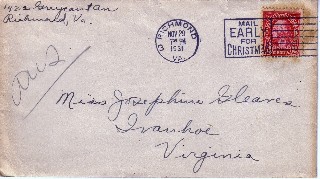 Richmond, Va.
RICHMOND
NOV 29
7 PM
1931
VA.
MAIL
EARLY
FOR
CHRISTMAS
Miss Josephine Cleaves
Ivanhoe
Virginia